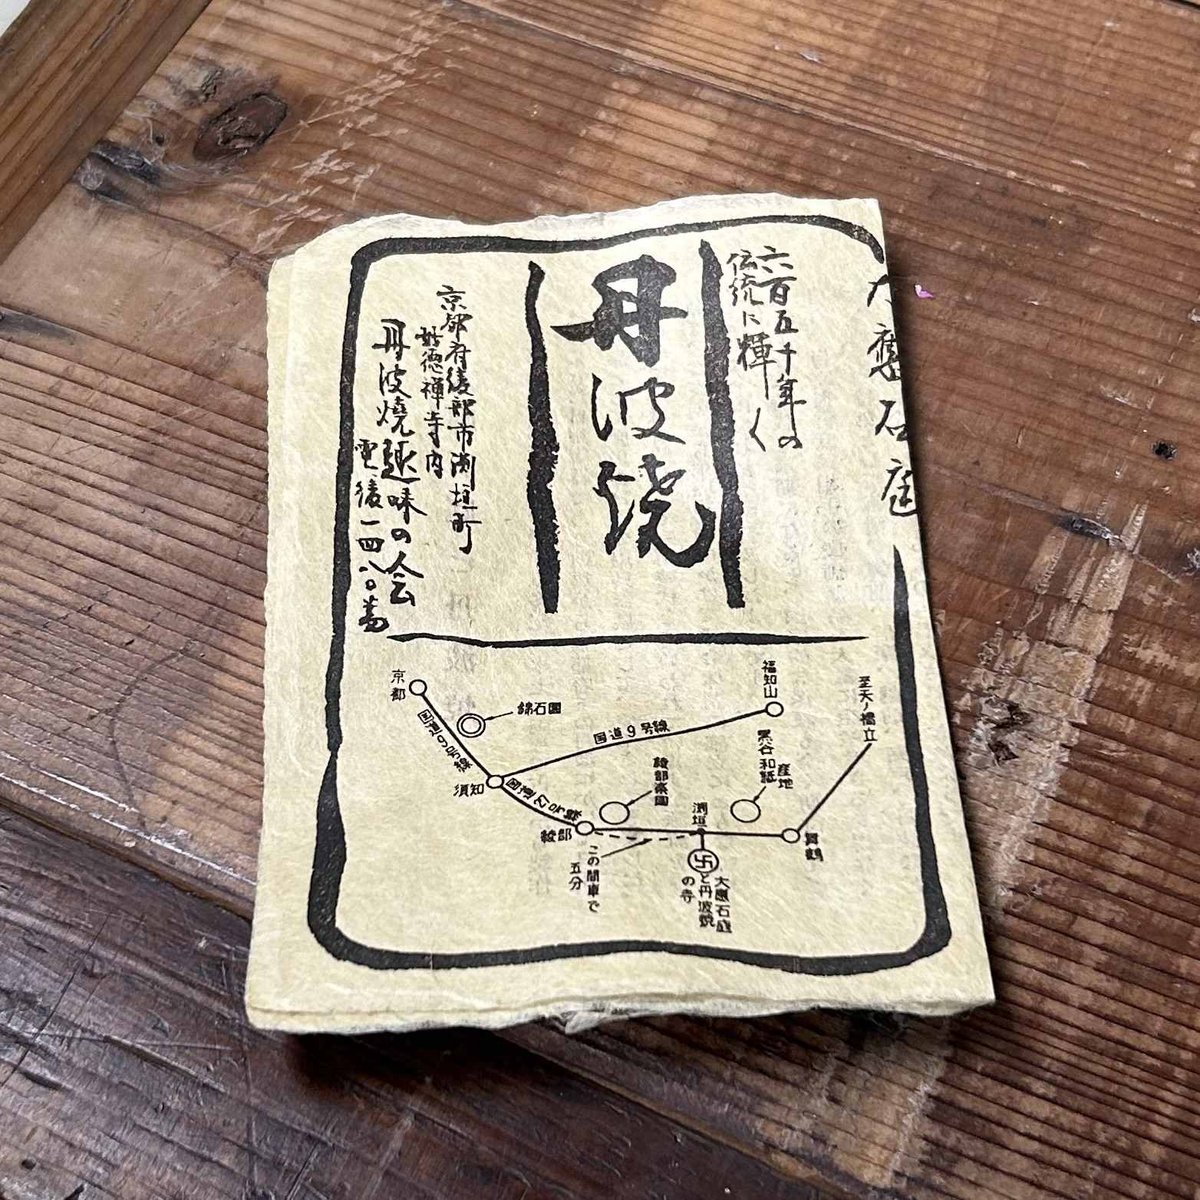 大應石庭
六百五十年の
伝統に輝く
丹波焼
京都府綾部市渕垣町
妙徳禅寺内
丹波焼趣味の会
電・綾一四八〇番
京都
国道9号線
錦石園
須知
国道27号線
国道9号線
福知山
綾部
綾部楽園
この間車で
五分
黒谷和紙
産地
渕垣
大應石庭
と丹波焼
の寺
舞鶴
至天ノ橋立